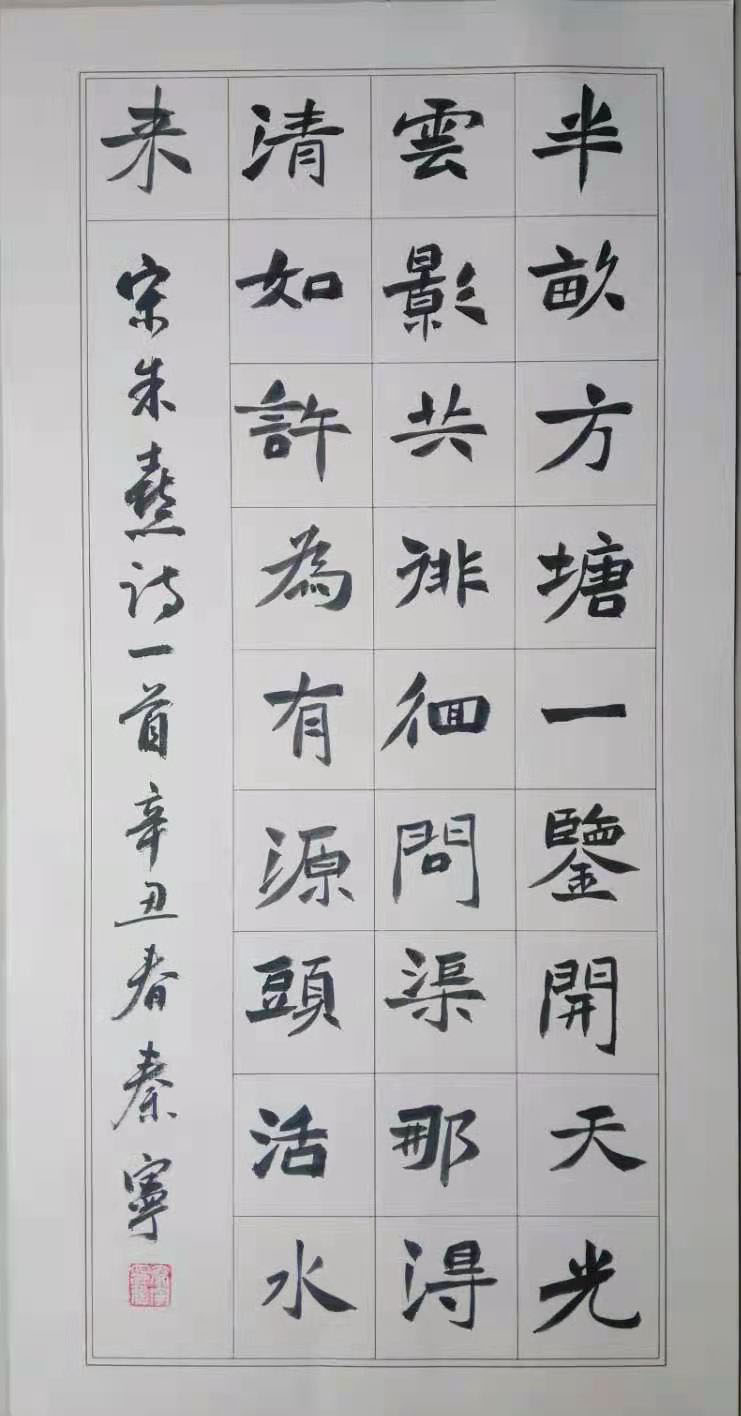 半畝方塘一鑒開天光
雲影共徘徊問渠那得
清如許為有源頭活水
来
宋朱熹诗一首辛丑春秦寧